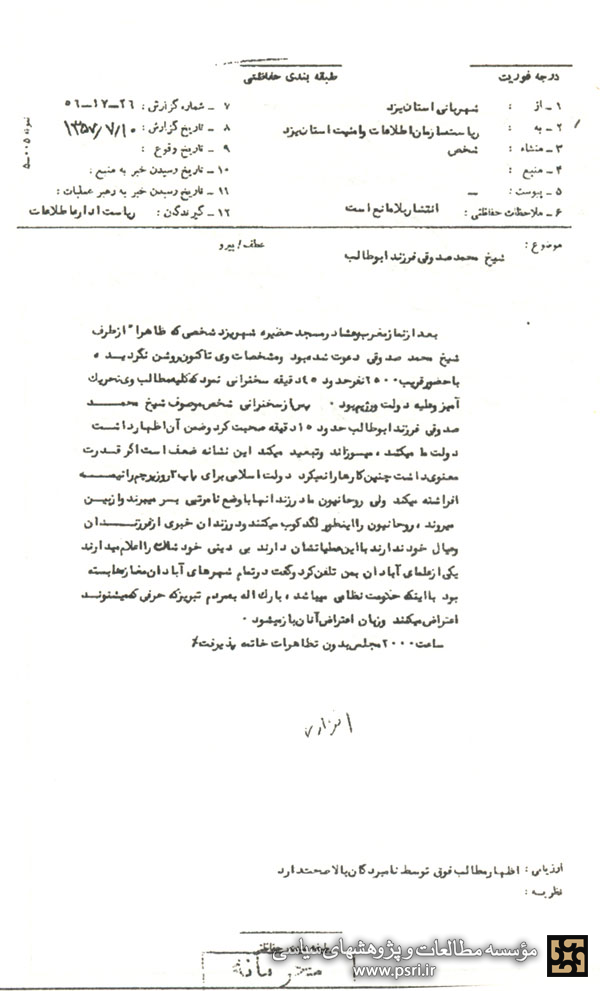 درجه فوریت
طبقه بندی حفاظتی
۱ـ از : شهربانی استان یزد
۲ـ به : ریاست سازمان اطلاعات وامنیت استان یزد
۳ـ منشاء : شخص
۴ـ منبع :
۵ـ پیوست : ـ
۶ـ ملاحظات حفاظتی : انتشار بلامانع است
۷ ـ شماره گزارش : ۲۶ـ۱۷ـ۵۶
۸ ـ تاریخ گزارش : ۱۳۵۷/۷/۱۰
۹ ـ تاریخ وقوع :
۱۰ ـ تاریخ رسیدن خبر به منبع :
۱۱ ـ تاریخ رسیدن خبر به رهبر عملیات :
۱۲ ـ گیرندگان : ریاست اداره اطلاعات
نمونه ۰۰۵ـ۵
موضوع : شیخ محمد صدوقی فرزند ابوطالب
عطف/ پیرو
بعد از نماز مغرب وعشاء در مسجد حضیره شهر یزد شخصی که ظاهرا" از طرف
شیخ محمد صدوقی دعوت شده بود ومشخصات وی تاکنون روشن نگردیده
با حضور قریب ۲۵۰۰ نفر حدود ۴۵ دقیقه سخنرانی نمود که کلیه مطالب وی تحریک
آمیز وعلیه دولت ورژیم بود . پس از سخنرانی شخص موصوف شیخ محمد
صدوقی فرزند ابوطالب حدود ۱۵ دقیقه صحبت کرد وضمن آن اظهار داشت
دولت ما میکشد ، میسوزاند وتبعید میکند این نشانه ضعف است اگر قدرت
معنوی داشت چنین کارها را نمیکرد دولت اسلامی برای پاپ ۳ روز پرچم را نیمه
افراشته میکند ولی روحانیون ما در زندانها با وضع نامرتبی بسر میبرند واز بین
میروند ، روحانیون را اینطور لگدکوب میکنند ودر زندان خبری از فرزندان
وعیال خود ندارند با این عملیاتشان دارند بی دینی خودشان را اعلام میدارند
یکی از علمای آبادان بمن تلفن کرد وگفت در تمام شهرهای آبادان مغازه ها بسته
بود با اینکه حکومت نظامی میباشد ، بارک اله بمردم تبریز که حرفی که میشنوند
اعتراض میکنند وزبان اعتراض آنان باز میشود .
ساعت ۲۰۰۰ مجلس بدون تظاهرات خاتمه پذیرفت /
ارزیابی : اظهار مطالب فوق توسط نامبردگان بالا صحت دارد
نظریه :
طبقه بندی حفاظتی
محرمانه
مؤسسه مطالعات و پژوهشهای سیاسی
www.psri.ir